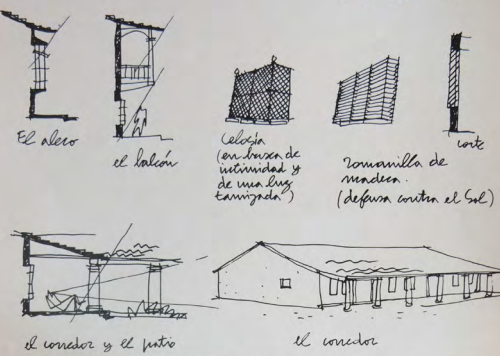 El alero
el balcón
Celogía
(en busca de
intimidad y
de una luz
tamizada)
romanilla de
madera.
(defensa contra el Sol)
corte
el corredor y el patio
el corredor